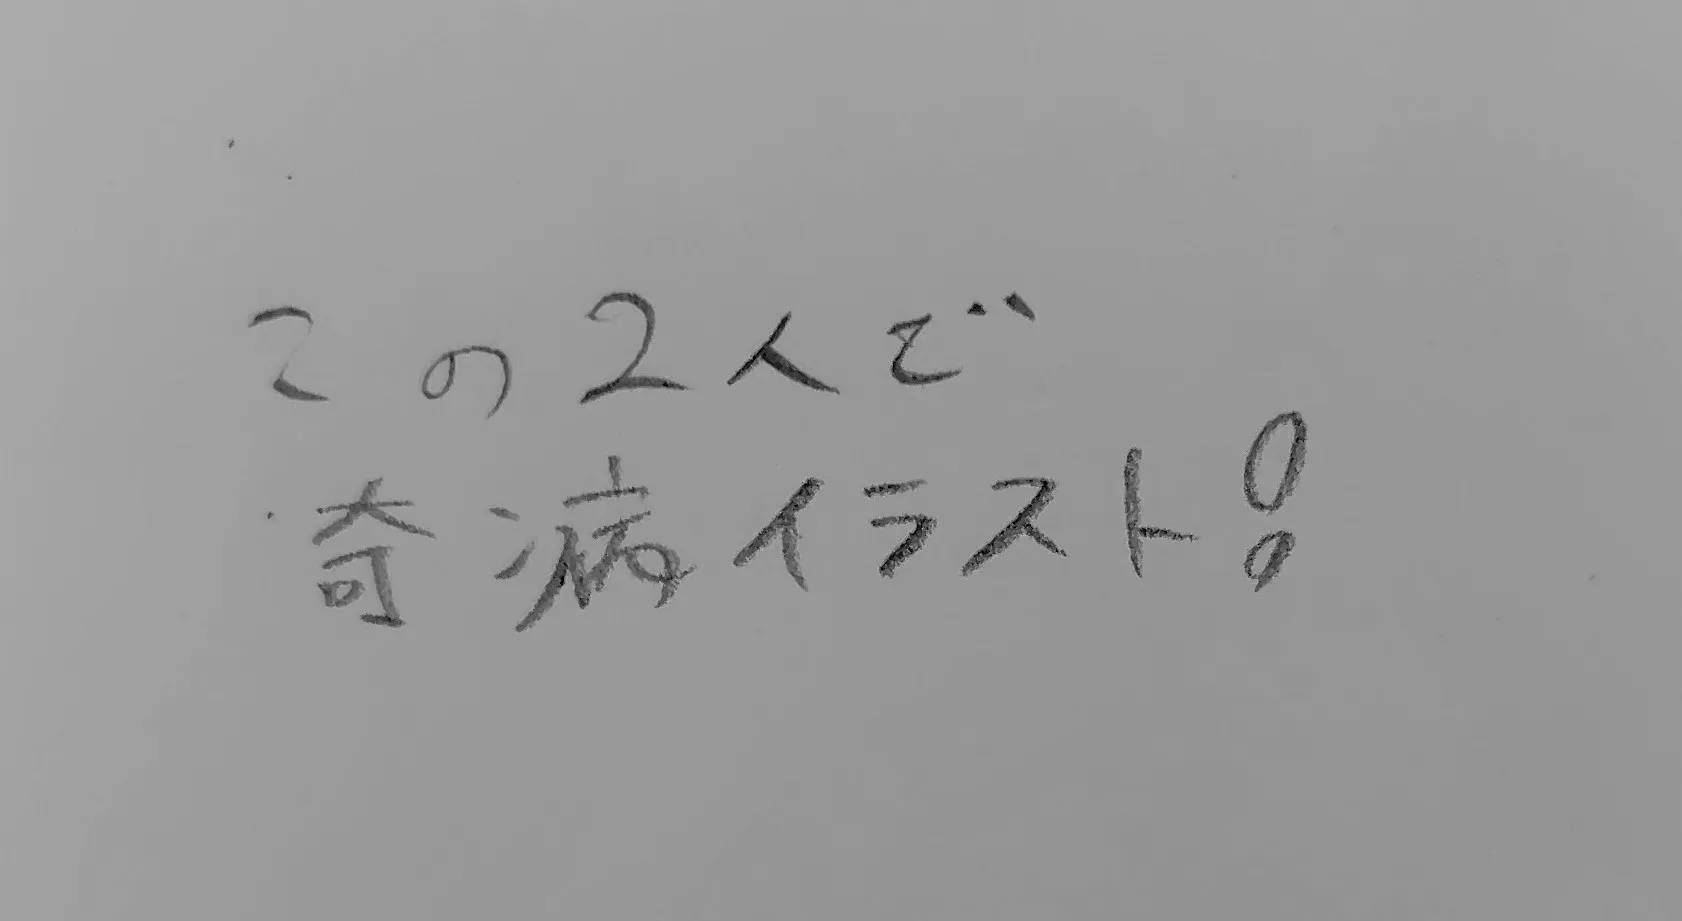 この2人で
奇病イラスト!